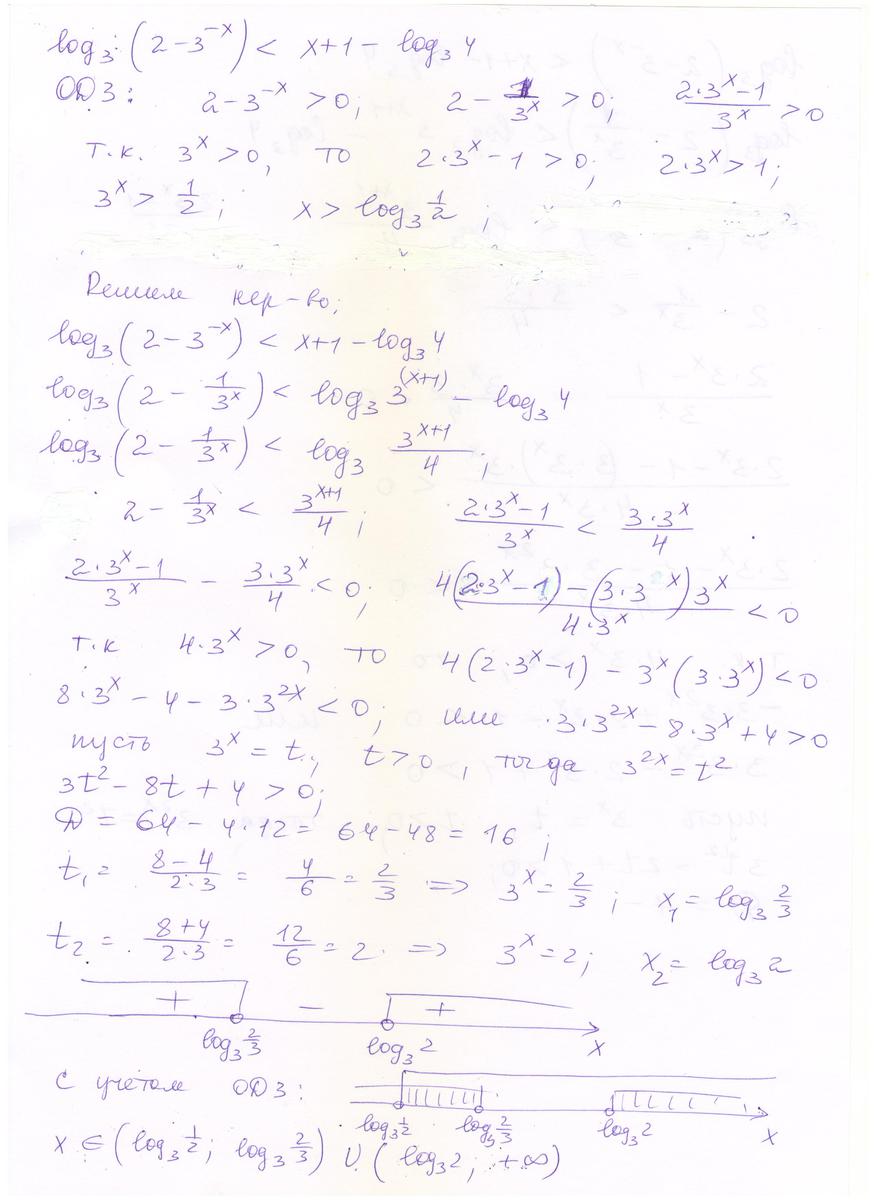 log₃(2-3^(-x)) < x+1 - log₃4
ОДЗ: 2-3^(-x) > 0; 2 - 1/3^x > 0; (2·3^x-1)/3^x > 0
т.к. 3^x > 0, то 2·3^x - 1 > 0; 2·3^x > 1;
3^x > 1/2; x > log₃ 1/2;
Решаем нер-во;
log₃(2-3^(-x)) < x+1 - log₃4
log₃(2 - 1/3^x) < log₃3^(x+1) - log₃4
log₃(2 - 1/3^x) < log₃ 3^(x+1)/4;
2 - 1/3^x < 3^(x+1)/4; (2·3^x-1)/3^x < 3·3^x/4
(2·3^x-1)/3^x - 3·3^x/4 < 0; (4(2·3^x-1)-(3·3^x)3^x)/(4·3^x) < 0
т.к 4·3^x > 0, то 4(2·3^x-1) - 3^x(3·3^x) < 0
8·3^x - 4 - 3·3^(2x) < 0; или 3·3^(2x) - 8·3^x + 4 > 0
пусть 3^x = t, t > 0, тогда 3^(2x) = t²
3t² - 8t + 4 > 0;
D = 64 - 4·12 = 64 - 48 = 16;
t₁ = (8-4)/(2·3) = 4/6 = 2/3 => 3^x = 2/3; x₁ = log₃ 2/3
t₂ = (8+4)/(2·3) = 12/6 = 2 => 3^x = 2; x₂ = log₃2
+ - +
log₃ 2/3 log₃2 x
С учётом ОДЗ:
log₃ 1/2 log₃ 2/3 log₃2 x
x ∈ (log₃ 1/2; log₃ 2/3) U (log₃2; +∞)